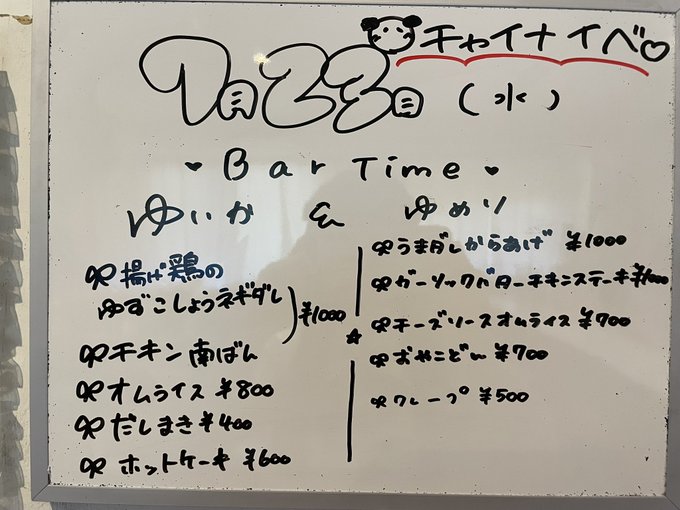 チャイナイベ♡
7月23日(水)
♥ Bar Time ♥
ゆいか & ゆめり
揚げ鶏の
ゆずこしょうネギダレ
¥1000
チキン南ばん
オムライス ¥800
だしまき ¥400
ホットケーキ ¥600
うまダレからあげ ¥1000
ガーリックバターチキンステーキ ¥1000
チーズソースオムライス ¥900
おやこどん ¥700
クレープ ¥500